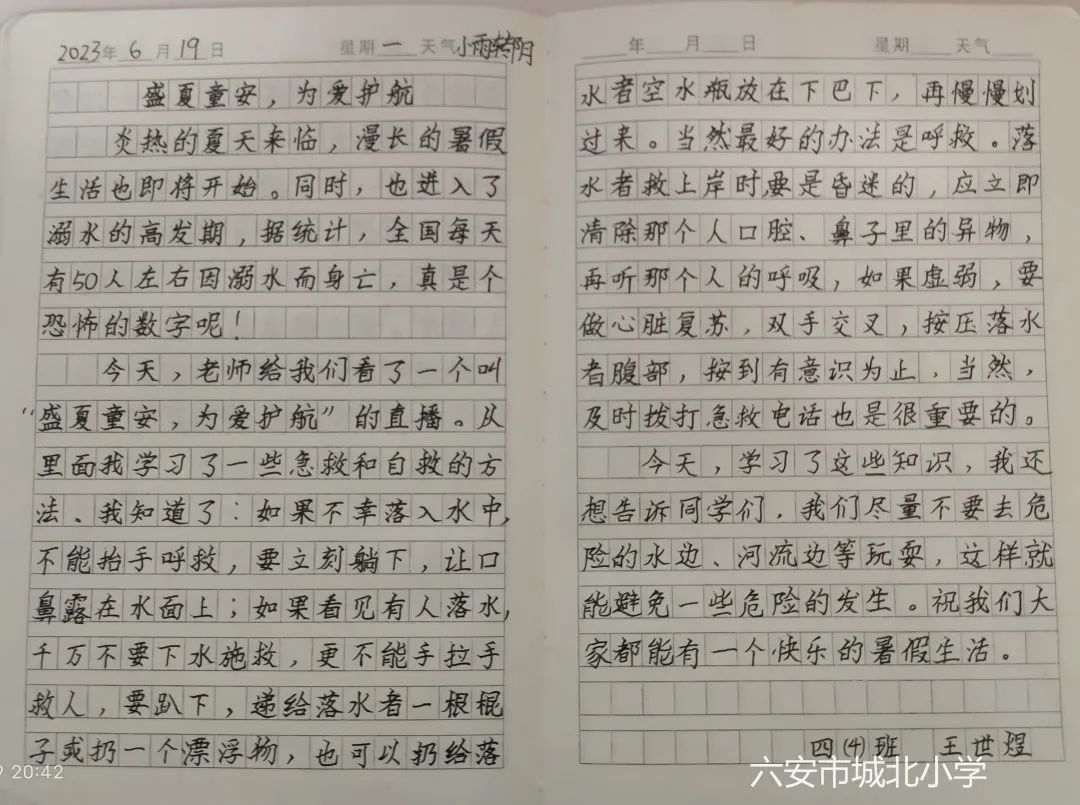 2023年 6 月 19 日 星期 一 天气 小雨转阴
盛夏童安，为爱护航
炎热的夏天来临，漫长的暑假
生活也即将开始。同时，也进入了
溺水的高发期，据统计，全国每天
有50人左右因溺水而身亡，真是个
恐怖的数字呢！
今天，老师给我们看了一个叫
“盛夏童安，为爱护航”的直播。从
里面我学习了一些急救和自救的方
法、我知道了：如果不幸落入水中，
不能抬手呼救，要立刻躺下，让口
鼻露在水面上；如果看见有人落水，
千万不要下水施救，更不能手拉手
救人，要趴下，递给落水者一根棍
子或扔一个漂浮物，也可以扔给落
年 月 日 星期 天气
水者空水瓶放在下巴下，再慢慢划
过来。当然最好的办法是呼救。落
水者救上岸时要是昏迷的，应立即
清除那个人口腔、鼻子里的异物，
再听那个人的呼吸，如果虚弱，要
做心脏复苏，双手交叉，按压落水
者腹部，按到有意识为止，当然，
及时拨打急救电话也是很重要的。
今天，学习了这些知识，我还
想告诉同学们，我们尽量不要去危
险的水边、河流边等玩耍，这样就
能避免一些危险的发生。祝我们大
家都能有一个快乐的暑假生活。
四(4)班 王世煜
六安市城北小学
20:42